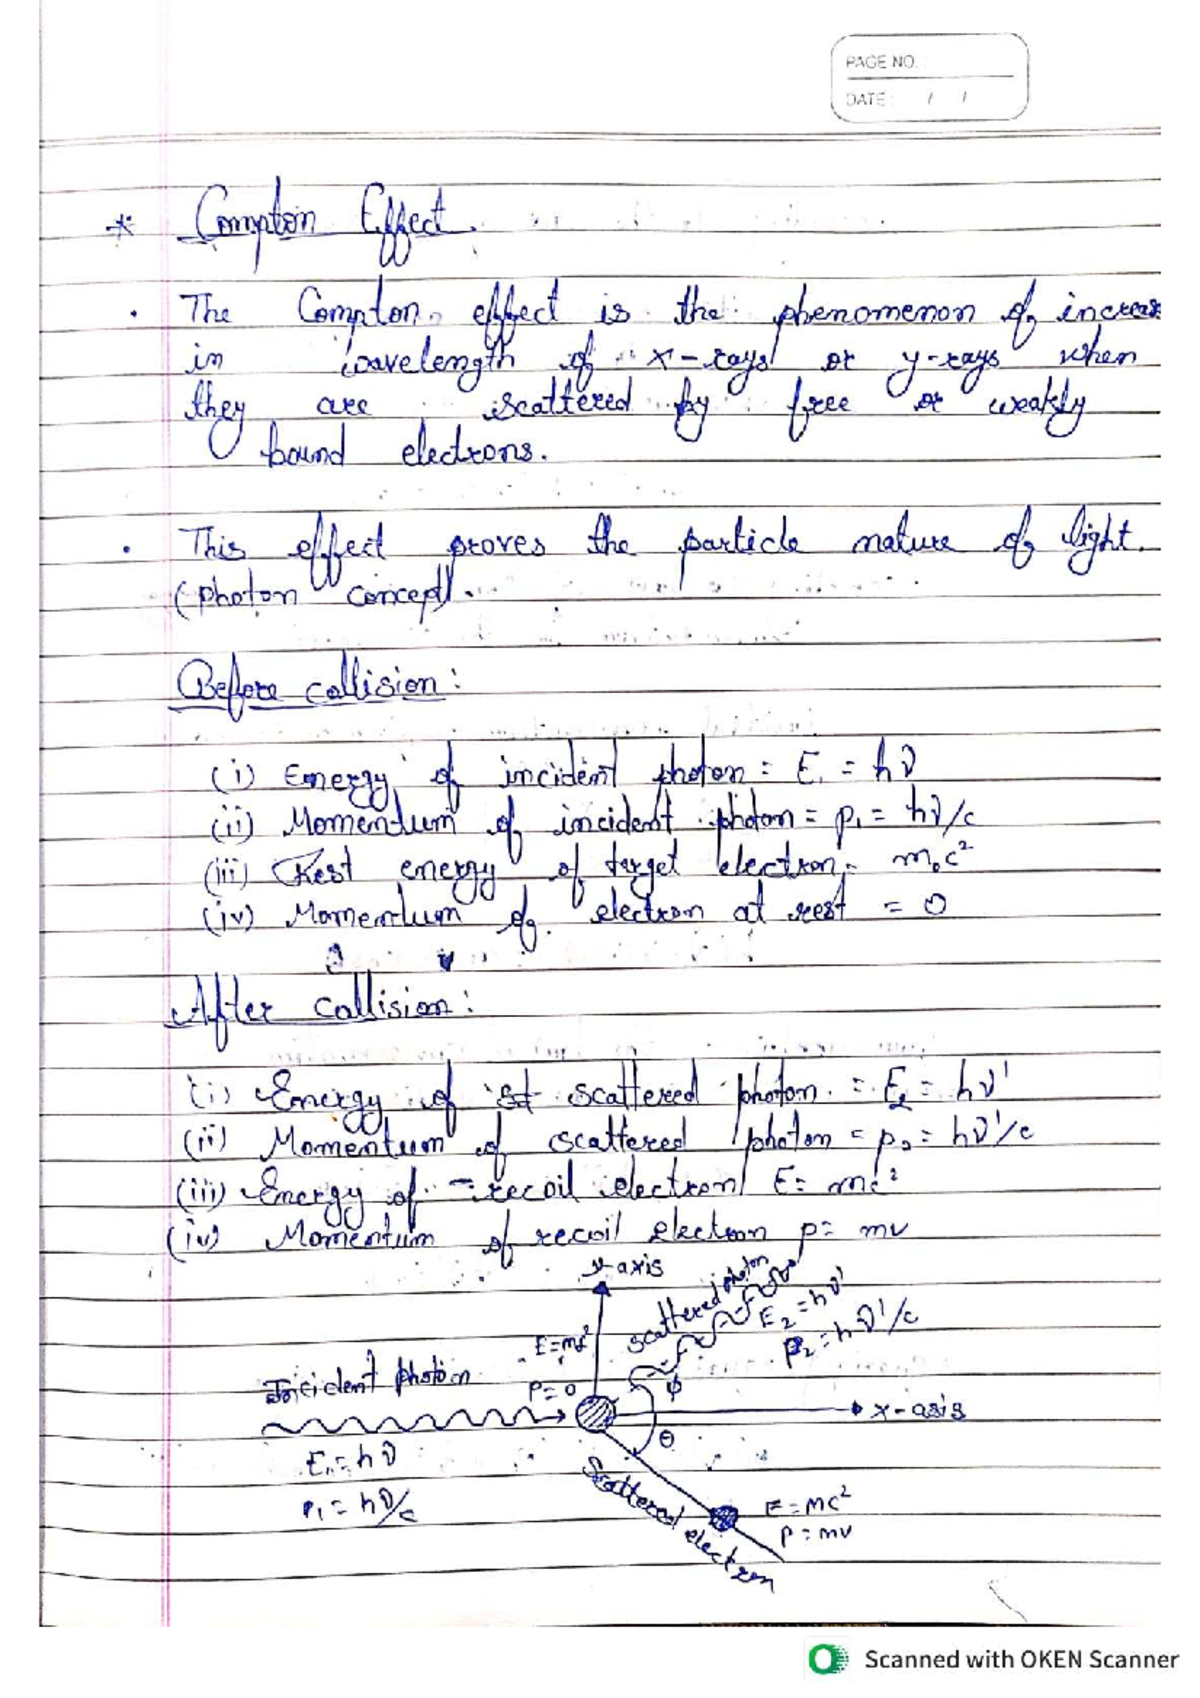 PAGE NO. :
DATE : / /
* Compton Effect.
· The Compton effect is the phenomenon of increas
in wavelength of x-rays or y-rays when
they are scattered by free or weakly
bound electrons.
· This effect proves the particle nature of light.
(photon concept).
Before collision:
(i) Energy of incident photon = E₁ = hν
(ii) Momentum of incident photon = p₁ = hν/c
(iii) Rest energy of target electron = m₀c²
(iv) Momentum of electron at rest = 0
After collision:
(i) Energy of scattered photon. = E₂ = hν'
(ii) Momentum of scattered photon = p₂ = hν'/c
(iii) Energy of recoil electron E= mc²
(iv) Momentum of recoil electron p= mv
y-axis
scattered photon
E₂ = hν'
p₂ = hν'/c
P=0
Incident photon
ϕ
x-axis
θ
E₁ = hν
P₁ = hν/c
Scattered electron
E = mc²
p = mv
Scanned with OKEN Scanner